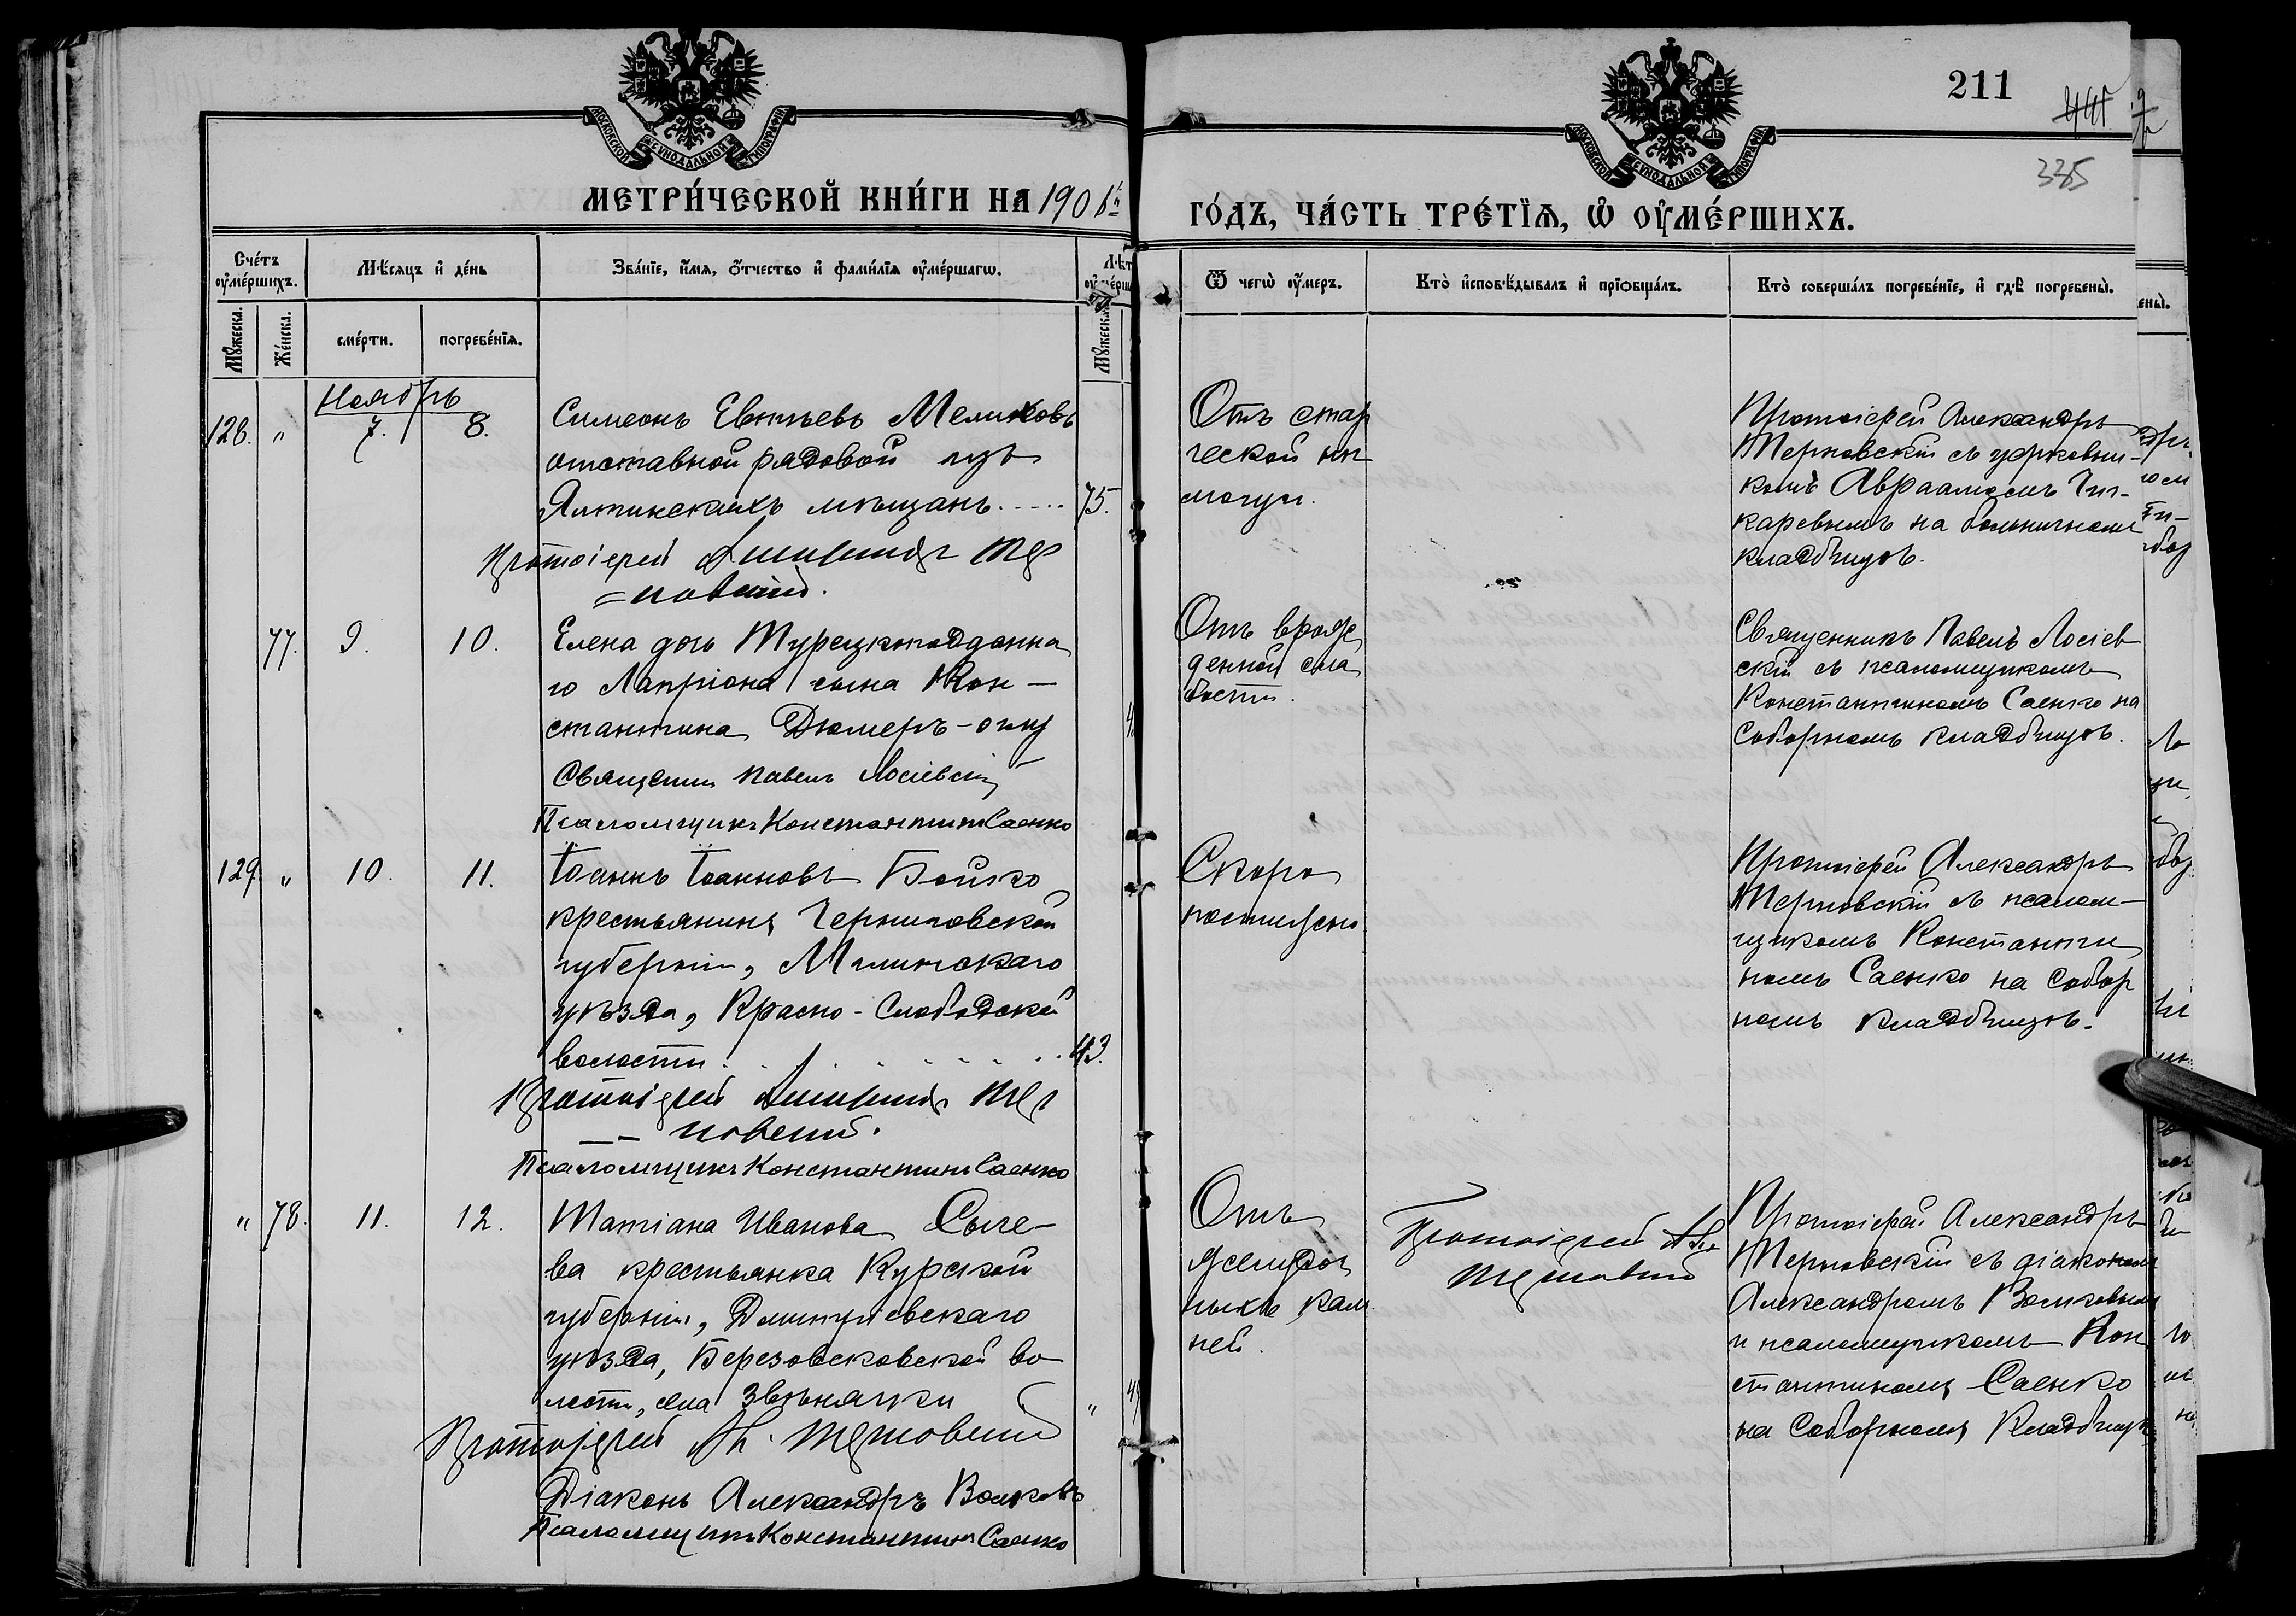 211
335
МОСКОВСКОЙ СѴНОДАЛЬНОЙ ТИПОГРАФІИ
МОСКОВСКОЙ СѴНОДАЛЬНОЙ ТИПОГРАФІИ
МЕТРИ́ЧЕСКОЙ КНИ́ГИ НА 190
ГО́ДЪ, ЧА́СТЬ ТРЕ́ТЇѦ, Ѽ ОУ҆МЕ́РШИХЪ.
Счётъ оу҆ме́ршихъ.
Мѣ́сяцъ и҆ де́нь
Зва́нїе, и҆́мя, ѻ҆́тчество и҆ фами́лїя оу҆ме́ршагѡ.
Лѣт
Ѿ чегѡ̀ оу҆́меръ.
Кто̀ и҆сповѣ́дывалъ и҆ прїѻбща́лъ.
Кто̀ соверша́лъ погребе́нїе, и҆ гдѣ̀ погребены̀.
Мꙋ́жеска.
Же́нска.
сме́рти.
погребе́нїя.
Мꙋ́жеска
Ноябрь
128. " 7. 8.
Симеонъ Евтьевъ Мелиховъ
отставной рядовой изъ
Ялтинскихъ мѣщанъ..... 75.
Протоіерей Александръ Тер
=новскій.
Отъ стар
ческой не
мощи.
Протоіерей Александръ
Терновскій съ церковни-
комъ Авраамомъ Ги-
каревымъ на больничномъ
кладбищѣ.
77. 9. 10.
Елена дочь Турецкоподданна
го Лапріона сына Кон-
стантина Дюмеръ-оглу
Священни Павелъ Лосіевскій
Псаломщикъ Константинъ Саенко
Отъ врож
денной сла
бости.
Священникъ Павелъ Лосіев
скій съ псаломщикомъ
Константиномъ Саенко на
Соборномъ кладбищѣ.
129. " 10. 11.
Іоаннъ Іоанновъ Бойко
крестьянинъ Черниговской
губерніи, Мглинскаго
уѣзда, Красно-Слободской
волости 43.
Протоіерей Александръ Тер
-- новскій.
Псаломщикъ Константинъ Саенко
Скоро
постижно
Протоіерей Александръ
Терновскій съ псалом-
щикомъ Константи
номъ Саенко на Собор
номъ кладбищѣ.
" 78. 11. 12.
Татіана Иванова Сыче-
ва крестьянка Курской
губерніи, Дмитріевскаго
уѣзда, во
лости, села "
Протоіерей Ал. Терновскій
Діаконъ Александръ Волковъ
Псаломщикъ Константинъ Саенко
Отъ
желудоч
ныхъ кам
ней.
Протоіерей Ал.
Терновскій
Протоіерей Александръ
Терновскій съ діакономъ
Александромъ Волковымъ
и псаломщикомъ Кон
стантиномъ Саенко
на Соборномъ Кладбищѣ